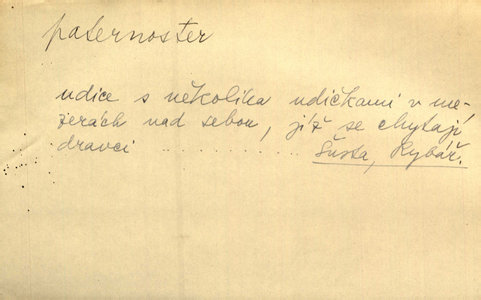 paternoster
udice s několika udičkami v me-
zerách nad sebou, jíž se chytají
dravci . . . . . . . . . . . . Šusta, Rybář.